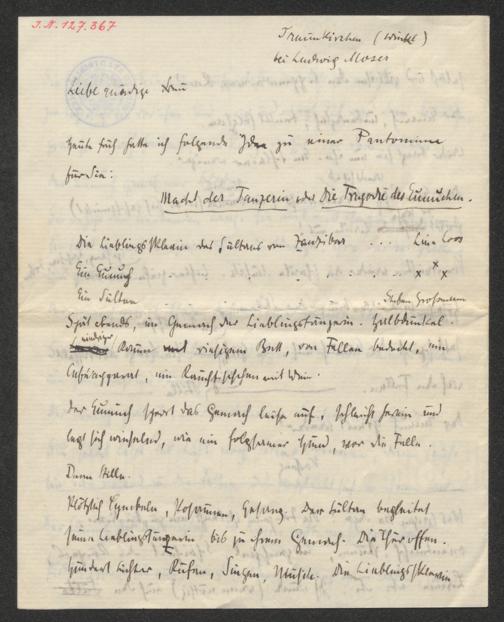 J.N. 127.367
Traunkirchen (Winkl)
bei Ludwig Moser
Liebe gnädige Frau
heute früh hatte ich folgende Idee zu einer Pantomime
für Sie:
Macht der Tänzerin oder Die Tragödie des Eunuchen.
Die Lieblingssklavin des Sultans von Zanzibar . . . Lina Loos
Ein Eunuch . . . x x x
Ein Sultan Stefan Großmann
Spät abends, im Gemach der Lieblingstänzerin. Halbdunkel.
Raum mit riesigem Bett, von Fellen bedeckt, ein
ein Rauchtischchen mit
Der Eunuch sperrt das Gemach leise auf, schleicht herein und
legt sich winselnd, wie ein folgsamer Hund, vor die Felle.
Dann Stille.
Plötzlich Cymbeln, Posaunen, Gesang. Der Sultan begleitet
seine Lieblingstänzerin bis zu ihrem Gemach. Die Thür offen.
Hundert Lichter, Rufen, Singen, Musik. Die Lieblingssklavin